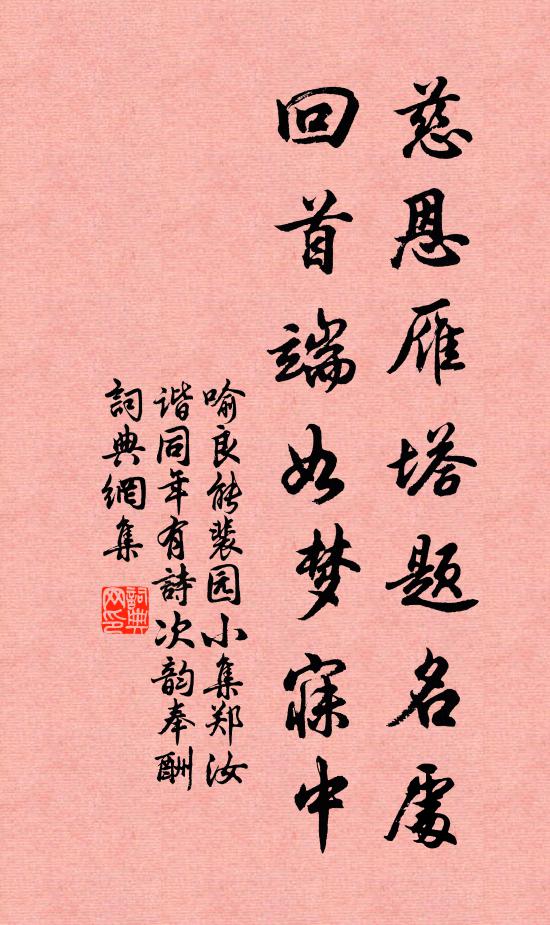 慈恩雁塔题名处
回首端如梦寐中
喻良能裴园小集郑汝
谐同年有詩次韵奉酬
詞典網集
詞典网印